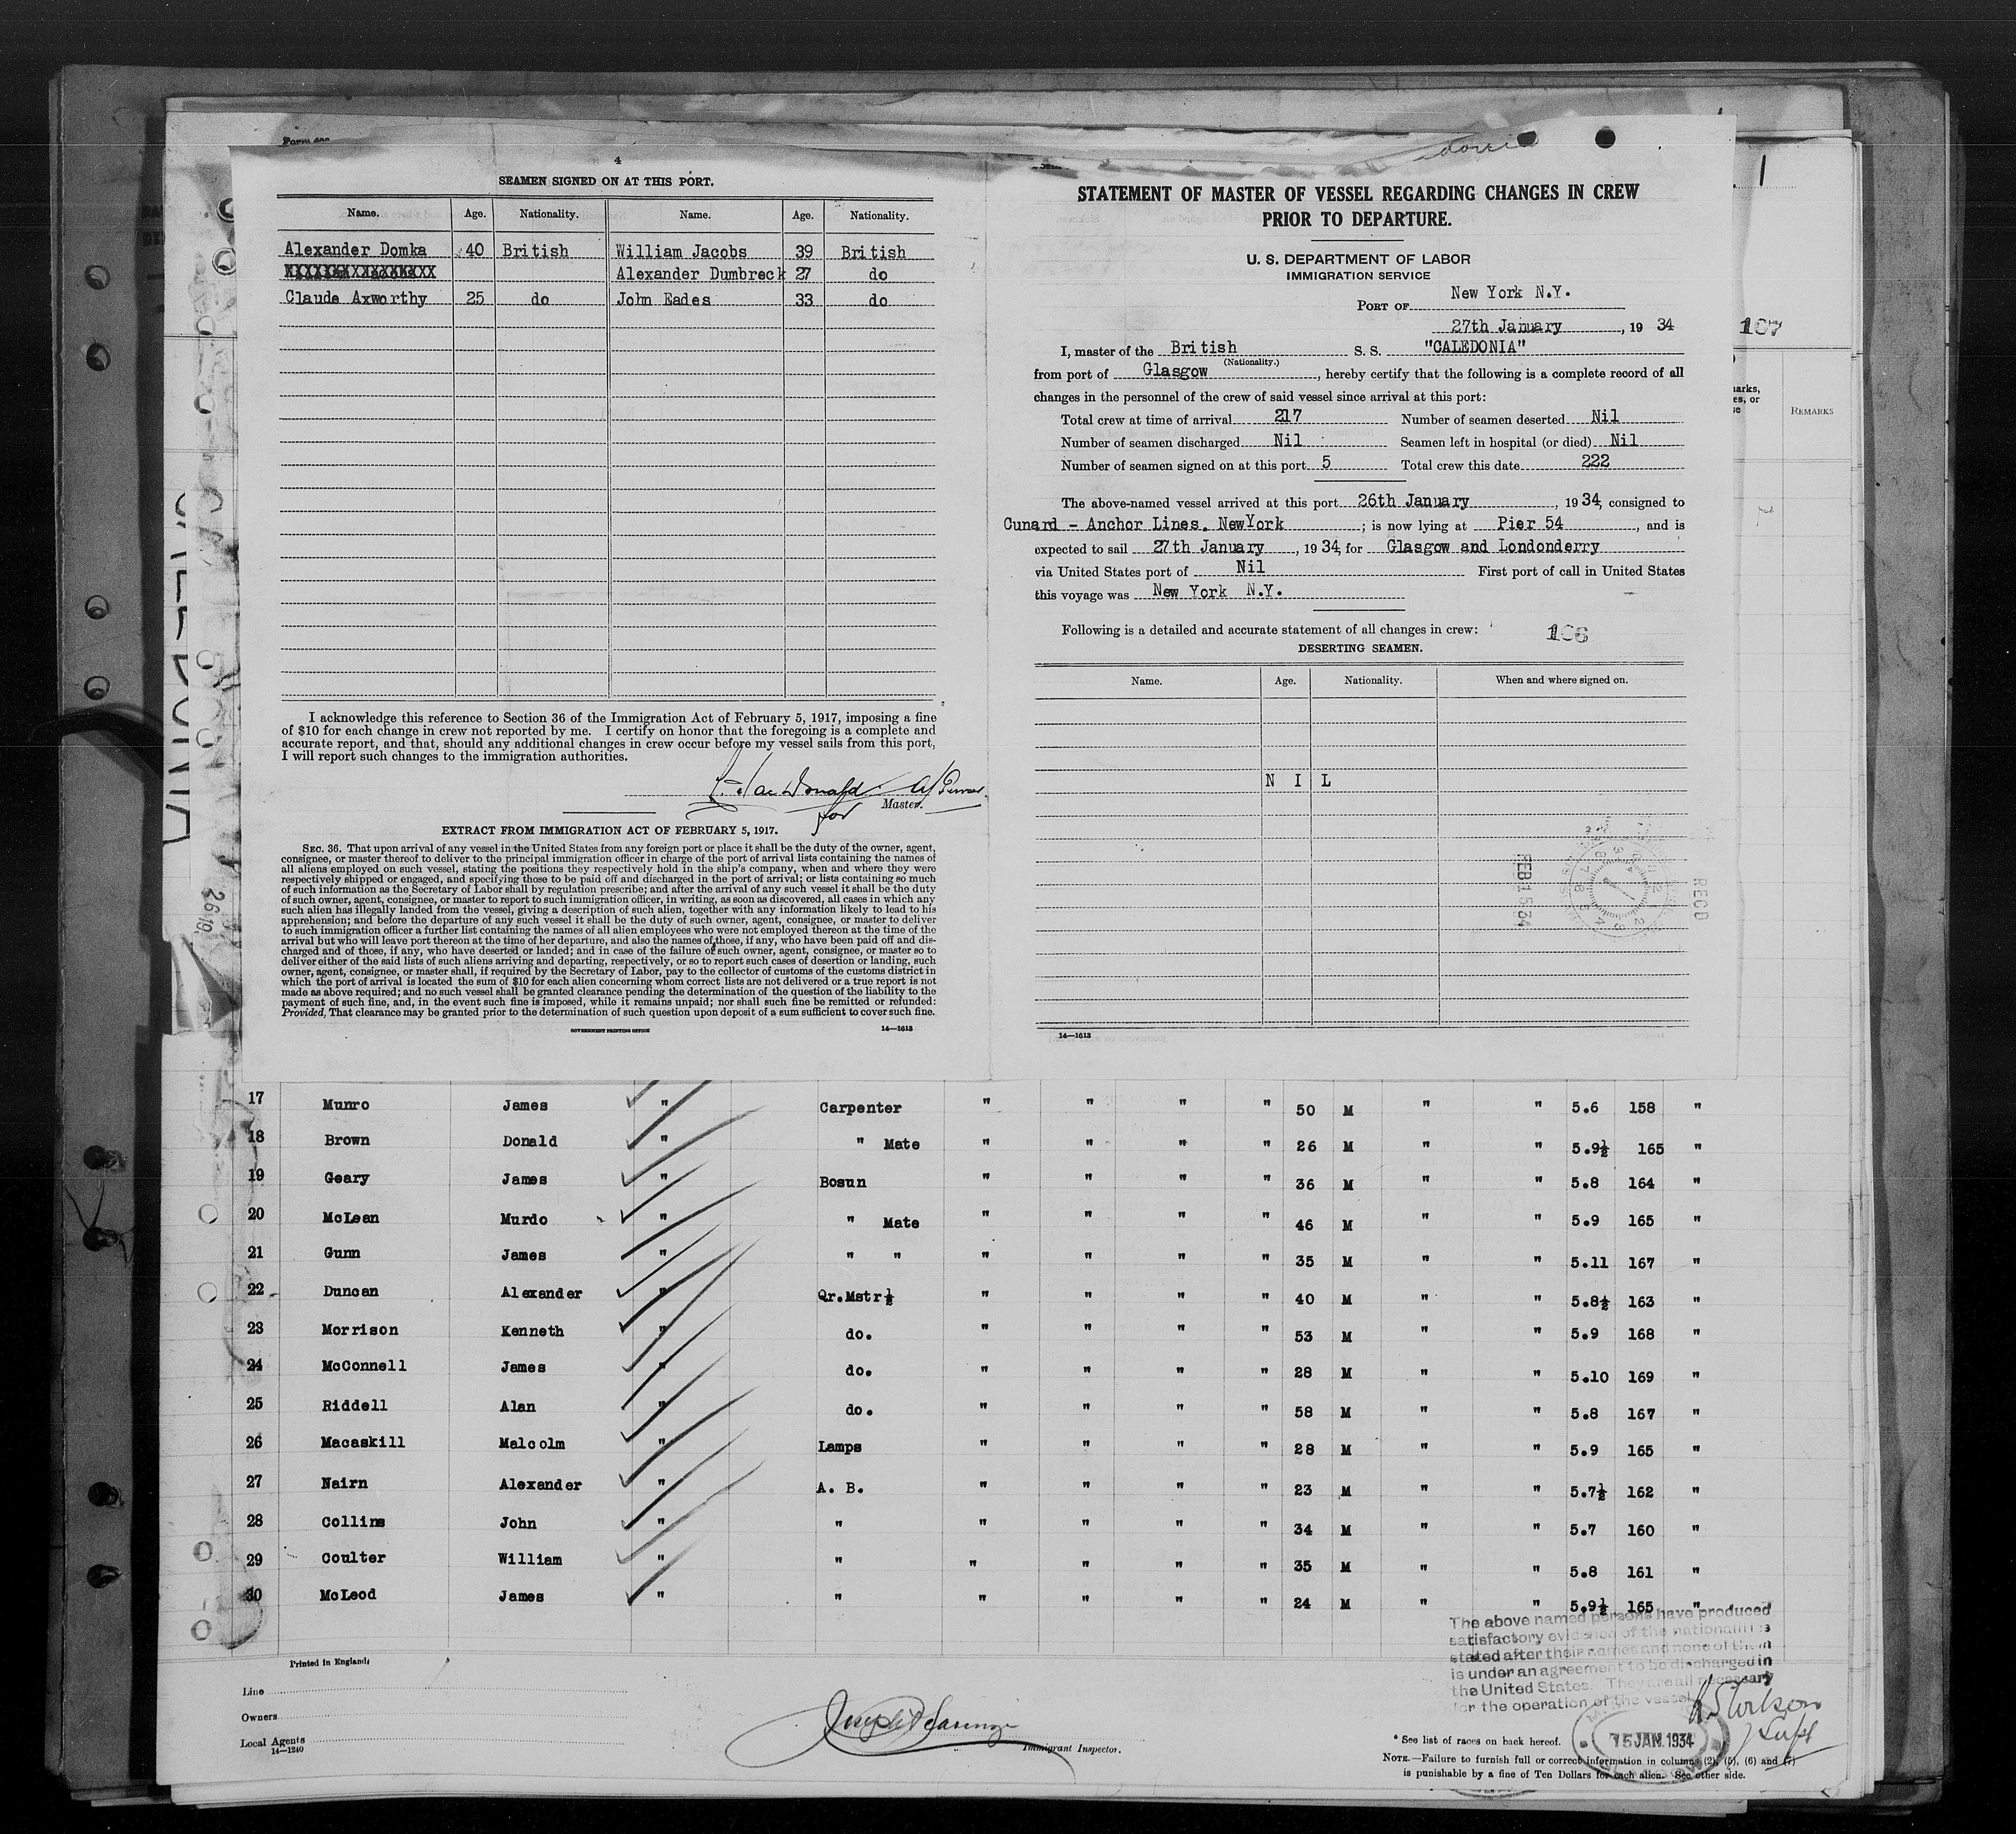 4
SEAMEN SIGNED ON AT THIS PORT.
Name. Age. Nationality. Name. Age. Nationality.
Alexander Domka 40 British William Jacobs 39 British
Alexander Dumbreck 27 do
Claude Axworthy 25 do John Eades 33 do
I acknowledge this reference to Section 36 of the Immigration Act of February 5, 1917, imposing a fine
of $10 for each change in crew not reported by me. I certify on honor that the foregoing is a complete and
accurate report, and that, should any additional changes in crew occur before my vessel sails from this port,
I will report such changes to the immigration authorities.
Master.
for
EXTRACT FROM IMMIGRATION ACT OF FEBRUARY 5, 1917.
SEC. 36. That upon arrival of any vessel in the United States from any foreign port or place it shall be the duty of the owner, agent,
consignee, or master thereof to deliver to the principal immigration officer in charge of the port of arrival lists containing the names of
all aliens employed on such vessel, stating the positions they respectively hold in the ship's company, when and where they were
respectively shipped or engaged, and specifying those to be paid off and discharged in the port of arrival; or lists containing so much
of such information as the Secretary of Labor shall by regulation prescribe; and after the arrival of any such vessel it shall be the duty
of such owner, agent, consignee, or master to report to such immigration officer, in writing, as soon as discovered, all cases in which any
such alien has illegally landed from the vessel, giving a description of such alien, together with any information likely to lead to his
apprehension; and before the departure of any such vessel it shall be the duty of such owner, agent, consignee, or master to deliver
to such immigration officer a further list containing the names of all alien employees who were not employed thereon at the time of the
arrival but who will leave port thereon at the time of her departure, and also the names of those, if any, who have been paid off and dis-
charged and of those, if any, who have deserted or landed; and in case of the failure of such owner, agent, consignee, or master so to
deliver either of the said lists of such aliens arriving and departing, respectively, or so to report such cases of desertion or landing, such
owner, agent, consignee, or master shall, if required by the Secretary of Labor, pay to the collector of customs of the customs district in
which the port of arrival is located the sum of $10 for each alien concerning whom correct lists are not delivered or a true report is not
made as above required; and no such vessel shall be granted clearance pending the determination of the question of the liability to the
payment of such fine, and, in the event such fine is imposed, while it remains unpaid; nor shall such fine be remitted or refunded:
Provided, That clearance may be granted prior to the determination of such question upon deposit of a sum sufficient to cover such fine.
GOVERNMENT PRINTING OFFICE 14—1613
STATEMENT OF MASTER OF VESSEL REGARDING CHANGES IN CREW
PRIOR TO DEPARTURE.
U. S. DEPARTMENT OF LABOR
IMMIGRATION SERVICE
PORT OF New York N.Y.
27th January, 19 34
I, master of the British S. S. "CALEDONIA"
(Nationality.)
from port of Glasgow, hereby certify that the following is a complete record of all
changes in the personnel of the crew of said vessel since arrival at this port:
Total crew at time of arrival 217 Number of seamen deserted Nil
Number of seamen discharged Nil Seamen left in hospital (or died) Nil
Number of seamen signed on at this port 5 Total crew this date 222
The above-named vessel arrived at this port 26th January, 19 34, consigned to
Cunard - Anchor Lines. NewYork; is now lying at Pier 54, and is
expected to sail 27th January, 19 34, for Glasgow and Londonderry
via United States port of Nil First port of call in United States
this voyage was New York N.Y.
Following is a detailed and accurate statement of all changes in crew: 106
DESERTING SEAMEN.
Name. Age. Nationality. When and where signed on.
N I L
FEB 15 34
RECD
14—1613
1
107
REMARKS
17 Munro James " Carpenter " " " " 50 M " " 5.6 158 "
18 Brown Donald " " Mate " " " " 26 M " " 5.9½ 165 "
19 Geary James " Bosun " " " " 36 M " " 5.8 164 "
20 McLean Murdo " " Mate " " " " 46 M " " 5.9 165 "
21 Gunn James " " " " " " " 35 M " " 5.11 167 "
22 Duncan Alexander " Qr.Mstr½ " " " " 40 M " " 5.8½ 163 "
23 Morrison Kenneth " do. " " " " 53 M " " 5.9 168 "
24 McConnell James " do. " " " " 28 M " " 5.10 169 "
25 Riddell Alan " do. " " " " 58 M " " 5.8 167 "
26 Macaskill Malcolm " Lamps " " " " 28 M " " 5.9 165 "
27 Nairn Alexander " A. B. " " " " 23 M " " 5.7½ 162 "
28 Collins John " " " " " " 34 M " " 5.7 160 "
29 Coulter William " " " " " " 35 M " " 5.8 161 "
30 McLeod James " " " " " " 24 M " " 5.9½ 165 "
The above named persons have produced
satisfactory evidence of the nationalities
stated after their names and none of them
is under an agreement to be discharged in
the United States. They are all necessary
for the operation of the vessel
Printed in England
Line
Owners
Local Agents
14—1240
Immigrant Inspector.
15 JAN. 1934
* See list of races on back hereof.
NOTE.—Failure to furnish full or correct information in columns (2), (5), (6) and (7)
is punishable by a fine of Ten Dollars for each alien. See other side.